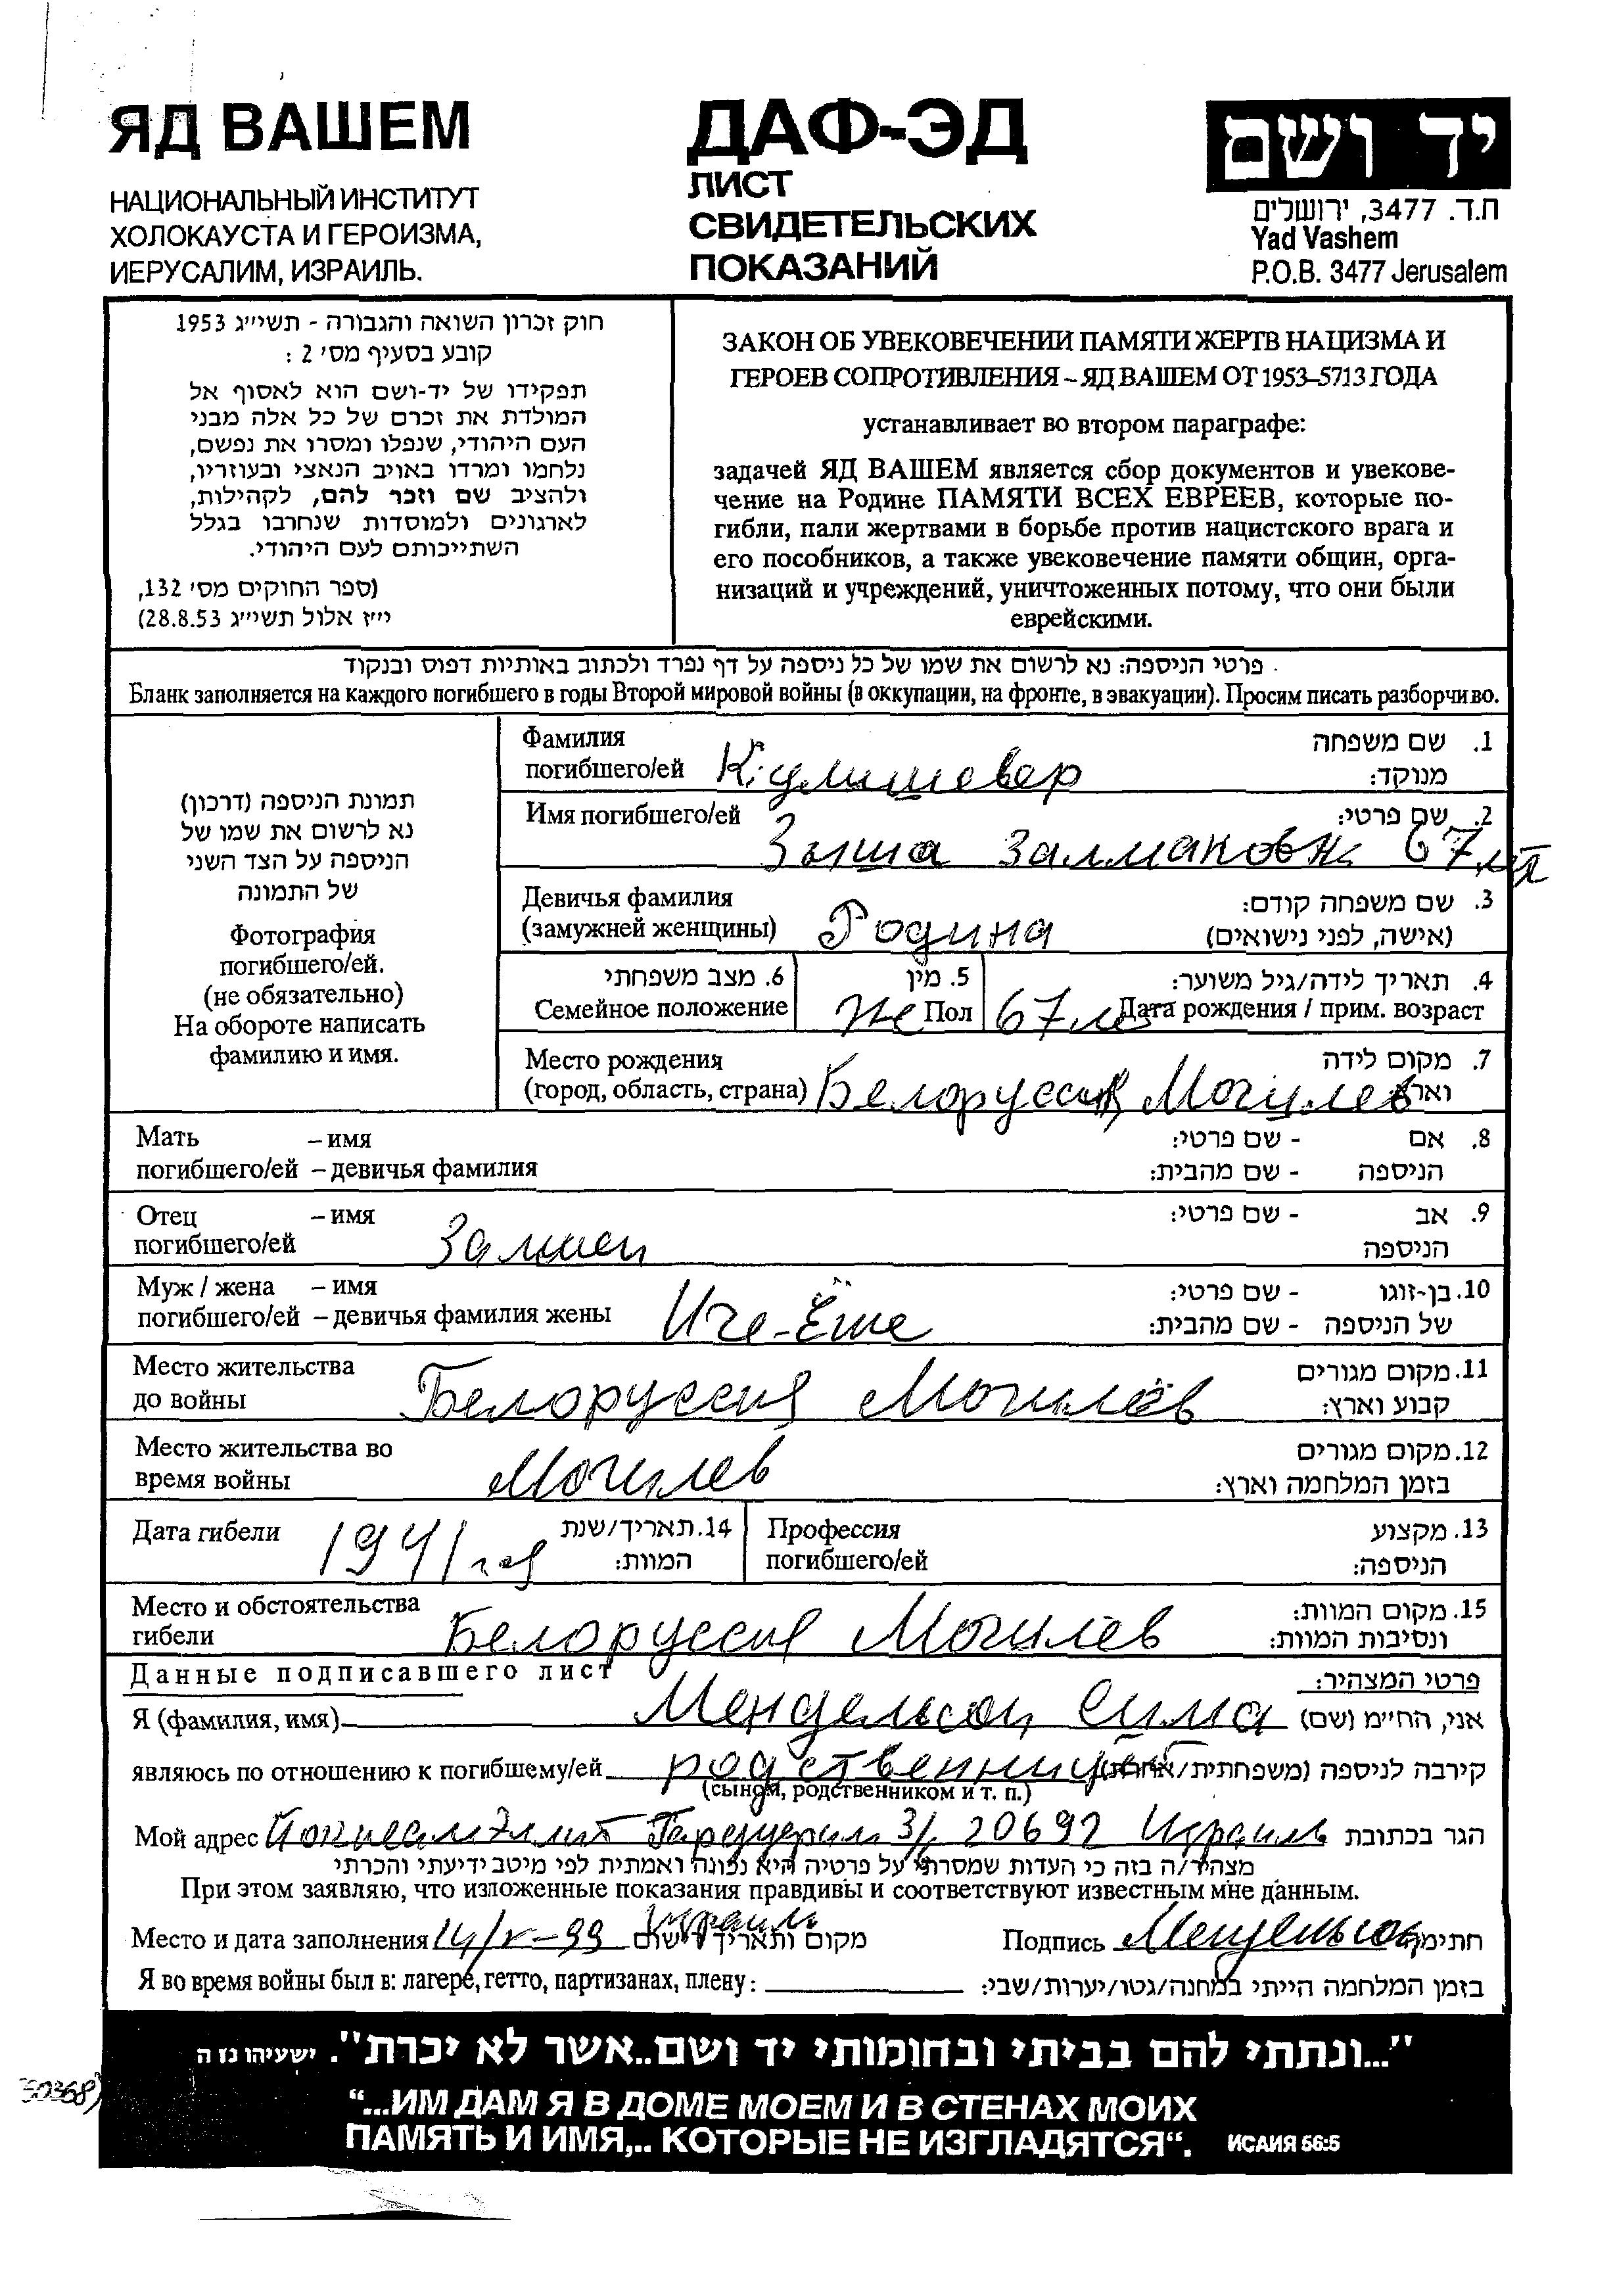 ЯД ВАШЕМ
НАЦИОНАЛЬНЫЙ ИНСТИТУТ
ХОЛОКАУСТА И ГЕРОИЗМА,
ИЕРУСАЛИМ, ИЗРАИЛЬ.
ДАФ-ЭД
ЛИСТ
СВИДЕТЕЛЬСКИХ
ПОКАЗАНИЙ
יד ושם
ת.ד. 3477, ירושלים
Yad Vashem
P.O.B. 3477 Jerusalem
חוק זכרון השואה והגבורה - תשי״ג 1953
קובע בסעיף מס׳ 2 :
תפקידו של יד-ושם הוא לאסוף אל
המולדת את זכרם של כל אלה מבני
העם היהודי, שנפלו ומסרו את נפשם,
נלחמו ומרדו באויב הנאצי ובעוזריו,
ולהציב שם וזכר להם, לקהילות,
לארגונים ולמוסדות שנחרבו בגלל
השתייכותם לעם היהודי.
(ספר החוקים מס׳ 132,
י״ז אלול תשי״ג 28.8.53)
ЗАКОН ОБ УВЕКОВЕЧЕНИИ ПАМЯТИ ЖЕРТВ НАЦИЗМА И
ГЕРОЕВ СОПРОТИВЛЕНИЯ – ЯД ВАШЕМ ОТ 1953–5713 ГОДА
устанавливает во втором параграфе:
задачей ЯД ВАШЕМ является сбор документов и увекове-
чение на Родине ПАМЯТИ ВСЕХ ЕВРЕЕВ, которые по-
гибли, пали жертвами в борьбе против нацистского врага и
его пособников, а также увековечение памяти общин, орга-
низаций и учреждений, уничтоженных потому, что они были
еврейскими.
פרטי הניספה: נא לרשום את שמו של כל ניספה על דף נפרד ולכתוב באותיות דפוס ובנקוד
Бланк заполняется на каждого погибшего в годы Второй мировой войны (в оккупации, на фронте, в эвакуации). Просим писать разборчиво.
תמונת הניספה (דרכון)
נא לרשום את שמו של
הניספה על הצד השני
של התמונה
Фотография
погибшего/ей.
(не обязательно)
На обороте написать
фамилию и имя.
Фамилия 1. שם משפחה
погибшего/ей Кулишевер מנוקד:
Имя погибшего/ей 2. שם פרטי:
Зыша Залмановн 67 лет
Девичья фамилия 3. שם משפחה קודם:
(замужней женщины) Родина (אישה, לפני נישואים)
6. מצב משפחתי 5. מין 4. תאריך לידה/גיל משוער:
Семейное положение Же Пол 67 ле Дата рождения / прим. возраст
Место рождения 7. מקום לידה
(город, область, страна) Белоруссия Могилев וארץ
Мать – имя 8. אם - שם פרטי:
погибшего/ей – девичья фамилия הניספה - שם מהבית:
Отец – имя 9. אב - שם פרטי:
погибшего/ей Залмен הניספה
Муж / жена – имя 10. בן-זוגו - שם פרטי:
погибшего/ей – девичья фамилия жены Иче-Ёше של הניספה - שם מהבית:
Место жительства 11. מקום מגורים
до войны Белоруссия Могилёв קבוע וארץ:
Место жительства во 12. מקום מגורים
время войны Могилев בזמן המלחמה וארץ:
Дата гибели 1941 год 14. תאריך/שנת Профессия 13. מקצוע
המוות: погибшего/ей הניספה:
Место и обстоятельства 15. מקום המוות:
гибели Белоруссия Могилев ונסיבות המוות:
Данные подписавшего лист פרטי המצהיר:
Я (фамилия, имя) Мендельсон Сима אני, החי״מ (שם)
являюсь по отношению к погибшему/ей родственницей קירבה לניספה (משפחתית/אחרת)
(сыном, родственником и т. п.)
Мой адрес 3/ 20692 Израиль הגר בכתובת
מצהיר/ה בזה כי העדות שמסרתי על פרטיה היא נכונה ואמתית לפי מיטב ידיעתי והכרתי
При этом заявляю, что изложенные показания правдивы и соответствуют известным мне данным.
Место и дата заполнения 14/V-99 Израиль מקום ותאריך רישום Подпись Мендельсон חתימה
Я во время войны был в: лагере, гетто, партизанах, плену: בזמן המלחמה הייתי במחנה/גטו/יערות/שבי:
"...ונתתי להם בביתי ובחומותי יד ושם..אשר לא יכרת". ישעיהו נז ה
"...ИМ ДАМ Я В ДОМЕ МОЕМ И В СТЕНАХ МОИХ
ПАМЯТЬ И ИМЯ,.. КОТОРЫЕ НЕ ИЗГЛАДЯТСЯ". ИСАИЯ 56:5